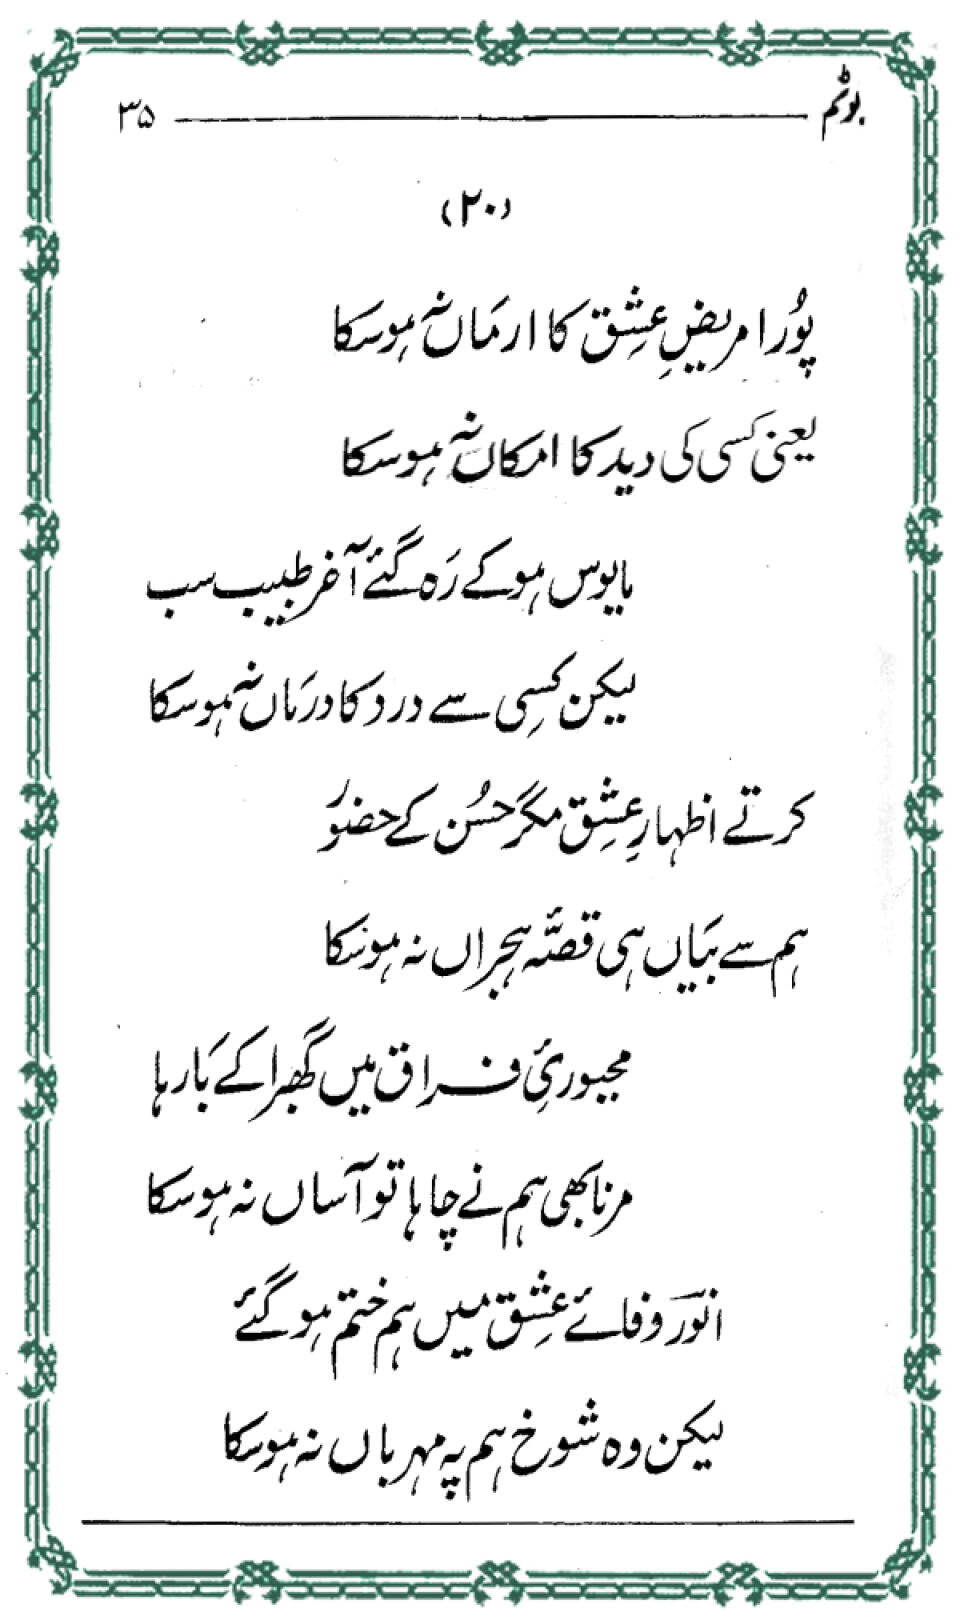 بوٹم ۳۵
(۲۰)
پُورا مریضِ عِشق کا ارمَاں نہ ہو سکا
یعنی کسی کی دید کا امکاں نہ ہو سکا
مایوس ہو کے رَہ گئے آخر طبیب سب
لیکن کسِی سے درد کا درمَاں نہ ہو سکا
کرتے اظہارِ عِشق مگر حسُن کے حضوُر
ہم سے بیَاں ہی قصّۂ ہجراں نہ ہو سکا
مجبوریِٔ فراق میں گھبرا کے بَارہا
مرنا بھی ہم نے چاہا تو آساں نہ ہو سکا
انورؔ وفائے عِشق میں ہم ختم ہو گئے
لیکن وہ شوخ ہم پہ مہرباں نہ ہو سکا